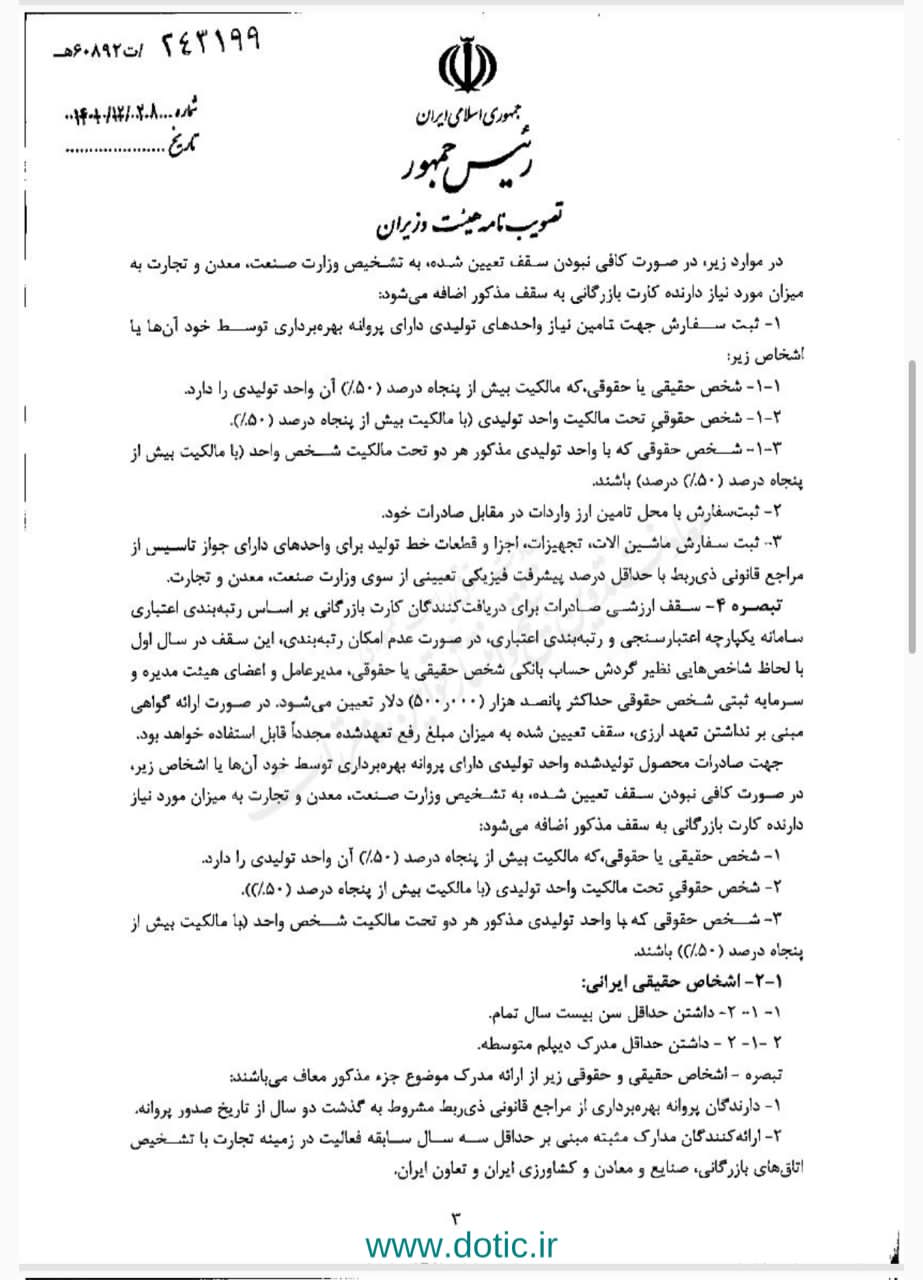 ۲۴۳۱۹۹ /ت۶۰۸۹۲هـ
جمهوری اسلامی ایران
رئیس جمهور
تصویب نامه هیئت وزیران
شماره
تاریخ
در موارد زیر، در صورت کافی نبودن سقف تعیین شده، به تشخیص وزارت صنعت، معدن و تجارت به
میزان مورد نیاز دارنده کارت بازرگانی به سقف مذکور اضافه می‌شود:
۱- ثبت سفارش جهت تامین نیاز واحدهای تولیدی دارای پروانه بهره‌برداری توسط خود آن‌ها یا
اشخاص زیر:
۱-۱- شخص حقیقی یا حقوقی،که مالکیت بیش از پنجاه درصد (۵۰٪) آن واحد تولیدی را دارد.
۱-۲- شخص حقوقیِ تحت مالکیت واحد تولیدی (با مالکیت بیش از پنجاه درصد (۵۰٪).
۱-۳- شخص حقوقی که با واحد تولیدی مذکور هر دو تحت مالکیت شخص واحد (با مالکیت بیش از
پنجاه درصد (۵۰٪) درصد) باشند.
۲- ثبت‌سفارش با محل تامین ارز واردات در مقابل صادرات خود.
۳- ثبت سفارش ماشین الات، تجهیزات، اجزا و قطعات خط تولید برای واحدهای دارای جواز تاسیس از
مراجع قانونی ذی‌ربط با حداقل درصد پیشرفت فیزیکی تعیینی از سوی وزارت صنعت، معدن و تجارت.
تبصره ۴- سقف ارزشی صادرات برای دریافت‌کنندگان کارت بازرگانی بر اساس رتبه‌بندی اعتباری
سامانه یکپارچه اعتبارسنجی و رتبه‌بندی اعتباری، در صورت عدم امکان رتبه‌بندی، این سقف در سال اول
با لحاظ شاخص‌هایی نظیر گردش حساب بانکی شخص حقیقی یا حقوقی، مدیرعامل و اعضای هیئت مدیره و
سرمایه ثبتی شخص حقوقی حداکثر پانصد هزار (۵۰۰ر۰۰۰) دلار تعیین می‌شود. در صورت ارائه گواهی
مبنی بر نداشتن تعهد ارزی، سقف تعیین شده به میزان مبلغ رفع تعهدشده مجدداً قابل استفاده خواهد بود.
جهت صادرات محصول تولیدشده واحد تولیدی دارای پروانه بهره‌برداری توسط خود آن‌ها یا اشخاص زیر،
در صورت کافی نبودن سقف تعیین شده، به تشخیص وزارت صنعت، معدن و تجارت به میزان مورد نیاز
دارنده کارت بازرگانی به سقف مذکور اضافه می‌شود:
۱- شخص حقیقی یا حقوقی،که مالکیت بیش از پنجاه درصد (۵۰٪) آن واحد تولیدی را دارد.
۲- شخص حقوقیِ تحت مالکیت واحد تولیدی (با مالکیت بیش از پنجاه درصد (۵۰٪)).
۳- شخص حقوقی که با واحد تولیدی مذکور هر دو تحت مالکیت شخص واحد (با مالکیت بیش از
پنجاه درصد (۵۰٪)) باشند.
۱-۲- اشخاص حقیقی ایرانی:
۱- ۱- ۲- داشتن حداقل سن بیست سال تمام.
۲ -۱- ۲ - داشتن حداقل مدرک دیپلم متوسطه.
تبصره - اشخاص حقیقی و حقوقی زیر از ارائه مدرک موضوع جزء مذکور معاف می‌باشند:
۱- دارندگان پروانه بهره‌برداری از مراجع قانونی ذی‌ربط مشروط به گذشت دو سال از تاریخ صدور پروانه.
۲- ارائه‌کنندگان مدارک مثبته مبنی بر حداقل سه سال سابقه فعالیت در زمینه تجارت با تشخیص
اتاق‌های بازرگانی، صنایع و معادن و کشاورزی ایران و تعاون ایران.
۳
www.dotic.ir